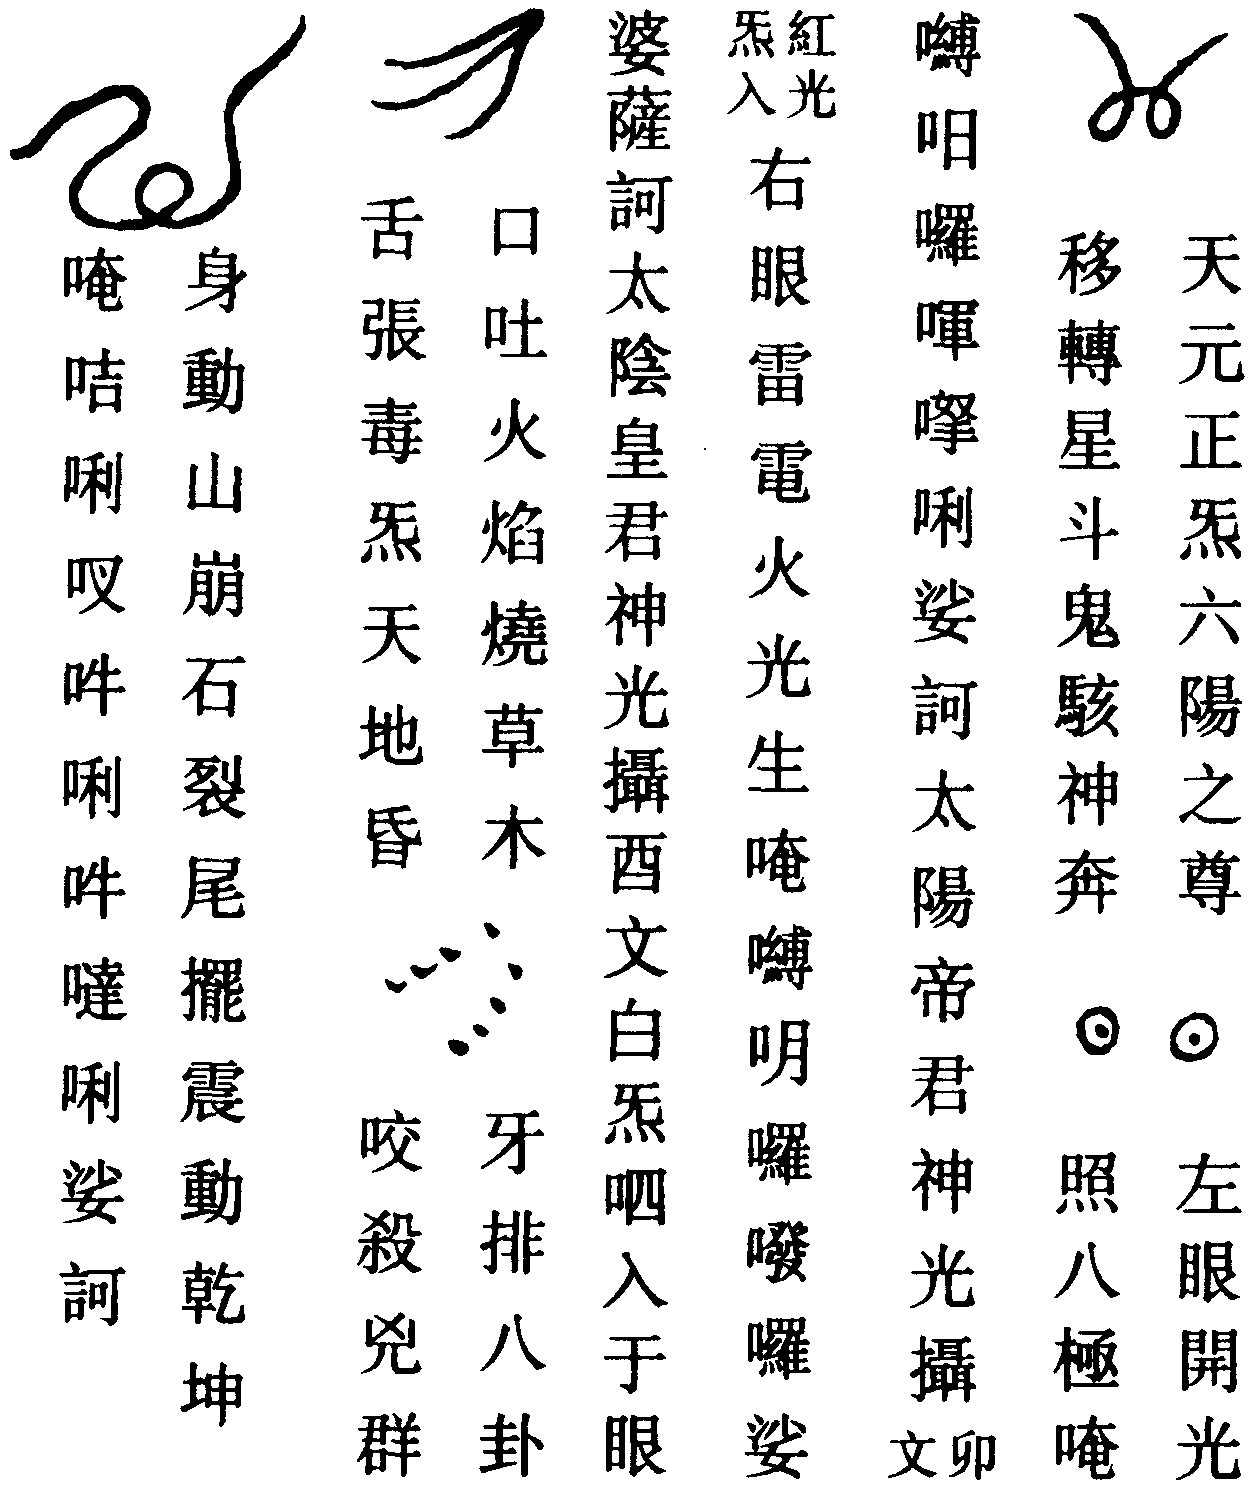 天元正炁六陽之尊
移轉星斗鬼駭神奔
左眼開光
照八極唵
嚩囉喗唎娑訶太陽帝君神光攝卯文
紅光炁入右眼雷電火光生唵嚩囉囉娑
婆薩訶太陰皇君神光攝酉文白炁呬入于眼
口吐火焰燒草木
舌張毒炁天地昏
牙排八卦
咬殺兇群
身動山崩石裂尾擺震動乾坤
唵咭唎吽唎吽噠唎娑訶